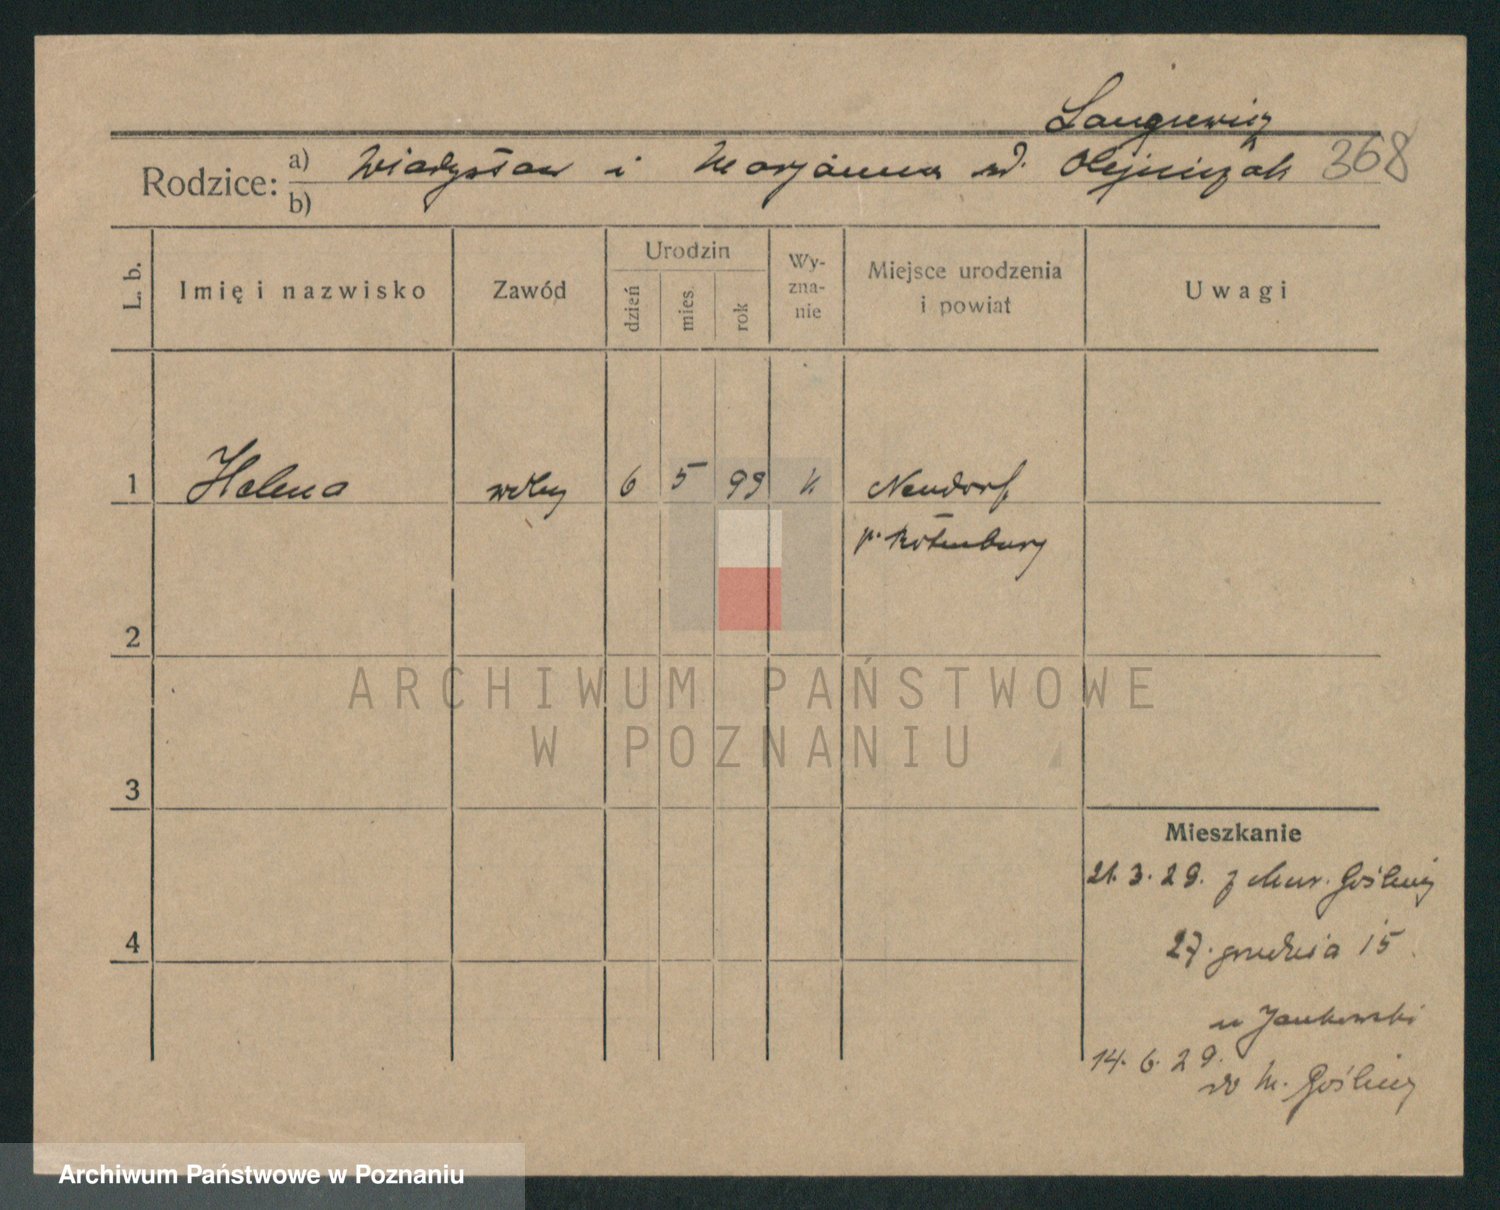 Langiewicz
Rodzice: a) Władysław i Marjanna ur. Olejniczak 368
b)
L. b. Imię i nazwisko Zawód Urodzin dzień mies. rok Wy-zna-nie Miejsce urodzenia i powiat Uwagi
1 Helena 6 5 99 k Neudorf
p. Rotenburg
2
ARCHIWUM PAŃSTWOWE
W POZNANIU
3
Mieszkanie
21.3.29. z Mur. Gośliny
4
27. grudnia 15
u Jankowski
14.6.29.
do M. Gośliny
Archiwum Państwowe w Poznaniu